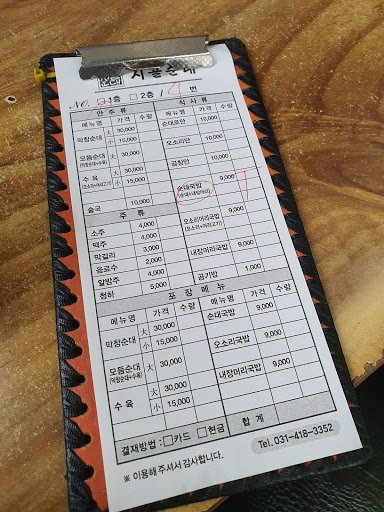 시골순대
NO. 1층 2층 / 4
안 주 류 식 사 류
메뉴명 가격 수량 메뉴명 가격 수량
막창순대 大 30,000 小 15,000 순대로만 10,000
모듬순대 (막창순대+수육) 大 30,000 오소리만 10,000
수 육 (오소리+머리고기) 大 30,000 小 15,000 곱창만 10,000
술국 10,000 순대국밥 (순대+내장머리) 9,000
주 류
소주 4,000 오소리머리국밥 (오소리+머리고기) 9,000
맥주 4,000
막걸리 3,000 내장머리국밥 9,000
음료수 2,000
알밤주 4,000 공기밥 1,000
청하 5,000
포 장 메 뉴
메뉴명 가격 수량 메뉴명 가격 수량
막창순대 大 30,000 小 15,000 순대국밥 9,000
모듬순대 (막창순대+수육) 大 30,000 오소리국밥 9,000
수 육 大 30,000 小 15,000 내장머리국밥 9,000
결재방법 : □카드 □현금 합 계
Tel. 031-418-3352
※ 이용해 주셔서 감사합니다.